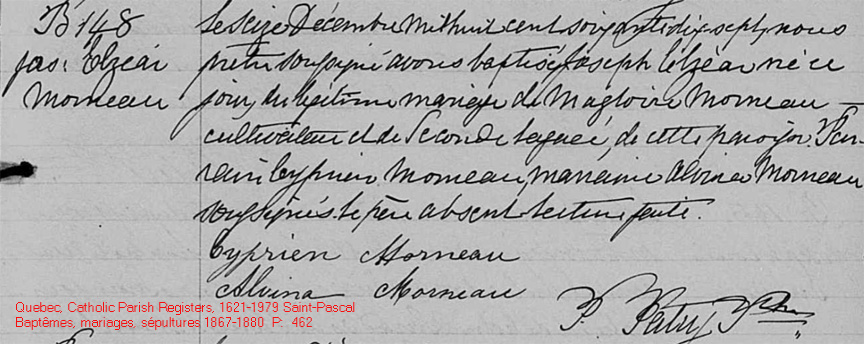 B 148
Jos: Elzéar
Morneau
Le seize Décembre mil huit cent soixante dix-sept, nous
prêtre soussigné avons baptisé Joseph Elzéar né ce
jour, du légitime mariage de Magloire Morneau
cultivateur et de Seconde de cette paroisse. Par-
rain Cyprien Morneau, marraine Alvina Morneau
soussignés. Le père absent. Lecture faite.
Cyprien Morneau
Alvina Morneau
P. Patry Ptre
Quebec, Catholic Parish Registers, 1621-1979 Saint-Pascal
Baptêmes, mariages, sépultures 1867-1880 P: 462